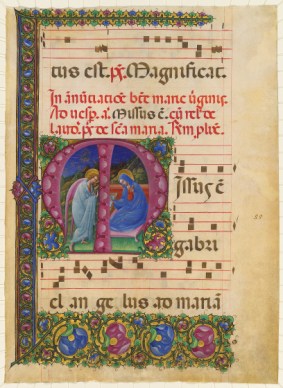 tus est. p̄. Magnificat.
In ānūciatiōe btē marie ūginis.
Ad uesp̄. a. Missus ē. cū rel. de
laudī. p̄. de scā maria. Sem. plrē.
M
issus ē
gabri
el an ge lus ad mariā